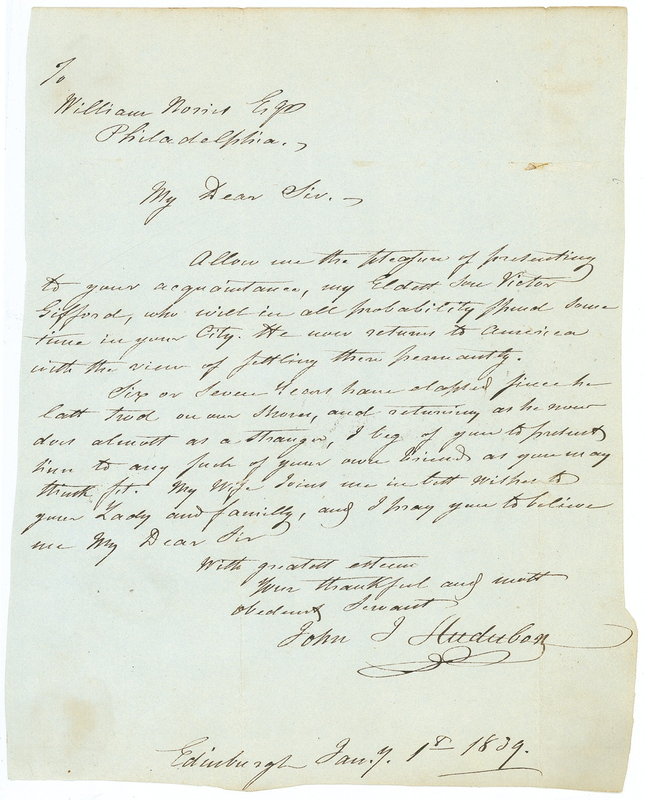 To
William Norris Esqr
Philadelphia.
My Dear Sir.
Allow me the pleasure of presenting
to your acquaintance, my Eldest Son Victor
Gifford, who will in all probability spend some
time in your City. He now returns to America
with the view of settling there permantly.
Six or Seven Years have elapsed since he
last trod on our Shores, and returning as he now
does almost as a stranger, I beg of you to present
him to any such of your own friends as you may
think fit. My Wife Joins me in best wishes to
your Lady and familly, and I pray you to believe
me My Dear Sir
With greatest esteem
Your thankful and most
obedient Servant
John J Audubon
Edinburgh Jany. 1st 1839.